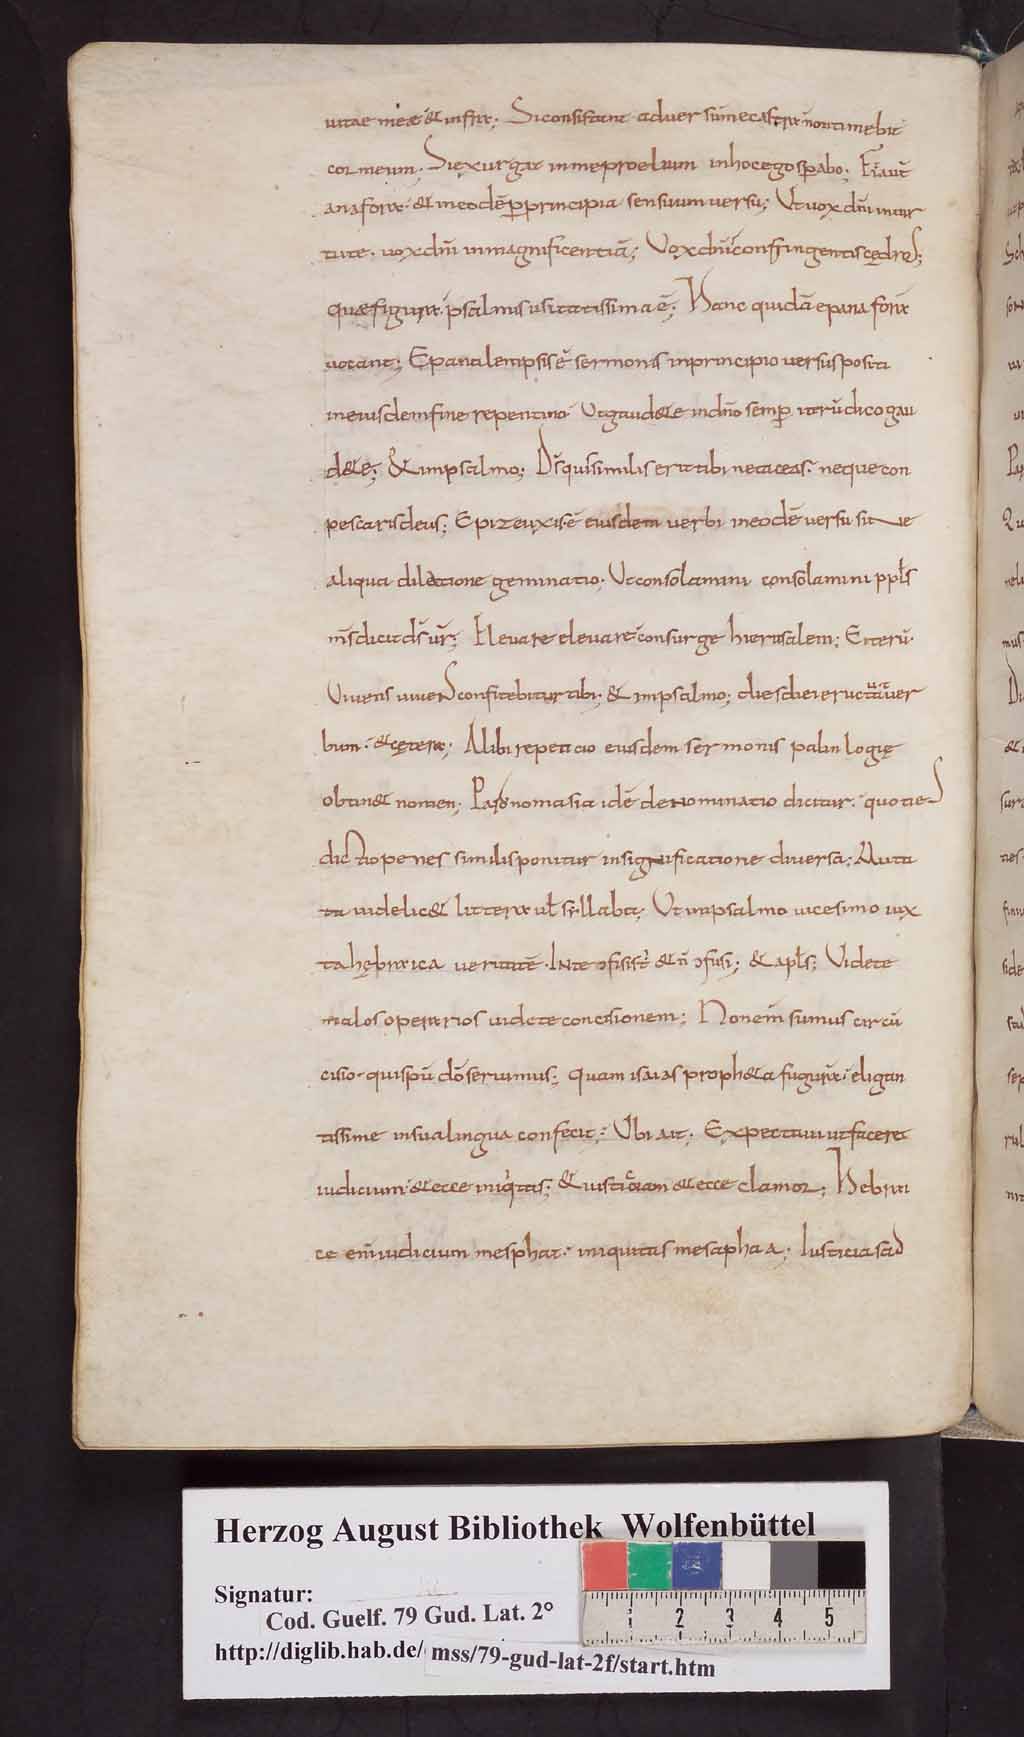 uitae meae & infra; Si consistant aduersum me castra non timebit
cor meum; Si exurgat in me proelium in hoc ego sperabo; Fit aut̄
anafora & in eodē per principia sensuum uersu; Ut uox dn̄i in uir
tute. uox dn̄i in magnificentiā; Vox dn̄i confringentis cędros;
quae figura psalmis usitatissima ē; Hanc quidā epanafora
uocant; Epanalempsis ē sermonis in principio uersus positi
in eiusdem fine repentino Ut gaud&e in dn̄o semp̄ iterū dico gau
d&e; & in psalmo; Ds̄ quis similis erit tibi ne taceas. neque con
pescaris deus; Epizeuxis ē eiusdem uerbi in eodē uersu sine
aliqua dilatione geminatio. Ut consolamini consolamini ppl̄s
ms̄ dicit ds̄ ur̄; Eleuare eleuare consurge hierusalem; Et iterū.
Viuens uiuens confitebitur tibi. & in psalmo; dies diei eructuat uer
bum. & cętera; Alibi repeticio eiusdem sermonis palinlogię
obtin& nomen; Paronomasia idē denominatio dicitur. quoties
dictio penes similis ponitur in significatione diuersa; Muta
ta uidelic& littera ul̄ syllaba; Ut in psalmo uicesimo iux
ta hębraica ueritatē. In te ɔfisi st̄ & n̄ ɔfusi; & apl̄s; Videte
malos operarios uidete concisionem; Non enim sumus circū
cisio. qui spū dō seruimus; quam isaias proph&a figurā eligan
tissime in sua lingua confecit; Ubi ait; Expectaui ut faceret
iudicium. & ecce iniquitas; & iusticiam & ecce clamor; Hebrai
ce enim iudicium mesphat. iniquitas mesaphaa; Iusticia sad

Herzog August Bibliothek Wolfenbüttel
Signatur:
Cod. Guelf. 79 Gud. Lat. 2°
http://diglib.hab.de/ mss/79-gud-lat-2f/start.htm
1 2 3 4 5